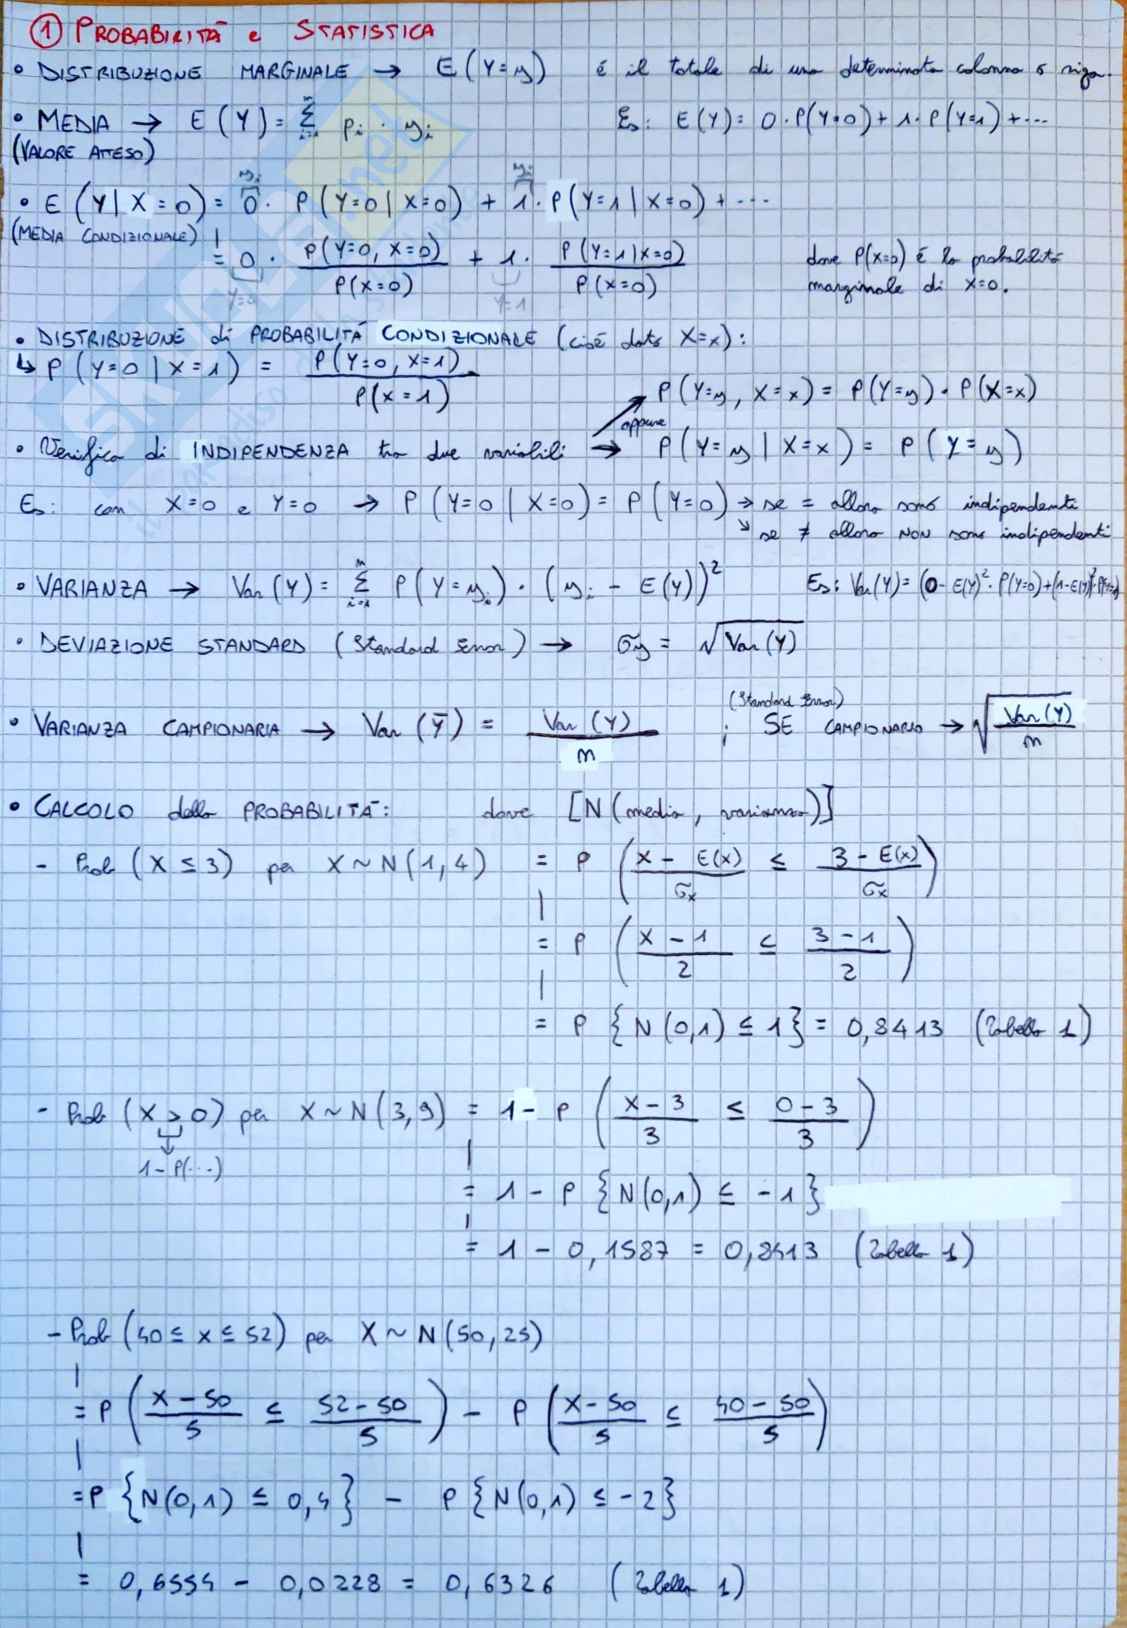 ① PROBABILITÀ e STATISTICA
• DISTRIBUZIONE MARGINALE → E(Y=y) é il totale di una determinata colonna o riga.
• MEDIA → E(Y) = Σ_{i=1}^{n} pi · yi Es: E(Y): 0·P(Y=0) + 1·P(Y=1) + ...
(VALORE ATTESO)
yi yi
• E(Y|X=0) = 0· P(Y=0|X=0) + 1· P(Y=1|X=0) + ...
(MEDIA CONDIZIONALE)
= 0 · P(Y=0, X=0)/P(X=0) + 1· P(Y=1|X=0)/P(X=0) dove P(X=0) é la probabilità
Y=0 Y=1 marginale di X=0.
• DISTRIBUZIONE di PROBABILITÀ CONDIZIONALE (cioé dato X=x):
↳ P(Y=0|X=1) = P(Y=0, X=1)/P(X=1)
P(Y=y, X=x) = P(Y=y) · P(X=x)
oppure
• Verifica di INDIPENDENZA tra due variabili → P(Y=y|X=x) = P(Y=y)
Es: con X=0 e Y=0 → P(Y=0|X=0) = P(Y=0) → se = allora sono indipendenti
↘ se ≠ allora NON sono indipendenti
• VARIANZA → Var(Y) = Σ_{i=1}^{n} P(Y=yi) · (yi - E(Y))² Es: Var(Y) = (0 - E(Y)² · P(Y=0) + (1-E(Y))²·P(Y=1)
• DEVIAZIONE STANDARD (Standard Error) → σy = √Var(Y)
(Standard Error)
• VARIANZA CAMPIONARIA → Var(Ȳ) = Var(Y)/n ; SE CAMPIONARIO → √(Var(Y)/n)
• CALCOLO della PROBABILITÀ: dove [N(media, varianza)]
- Prob (X ≤ 3) per X~N(1,4) = P (X - E(x)/σx ≤ 3 - E(x)/σx)
= P (X - 1/2 ≤ 3 - 1/2)
= P {N(0,1) ≤ 1} = 0,8413 (Tabella 1)
- Prob (X > 0) per X~N(3,9) = 1 - P (X - 3/3 ≤ 0 - 3/3)
1 - P(...)
= 1 - P {N(0,1) ≤ -1}
= 1 - 0,1587 = 0,8413 (Tabella 1)
- Prob (40 ≤ x ≤ 52) per X~N(50,25)
= P (X - 50/5 ≤ 52 - 50/5) - P (X - 50/5 ≤ 40 - 50/5)
= P {N(0,1) ≤ 0,4} - P {N(0,1) ≤ -2}
= 0,6554 - 0,0228 = 0,6326 (Tabella 1)